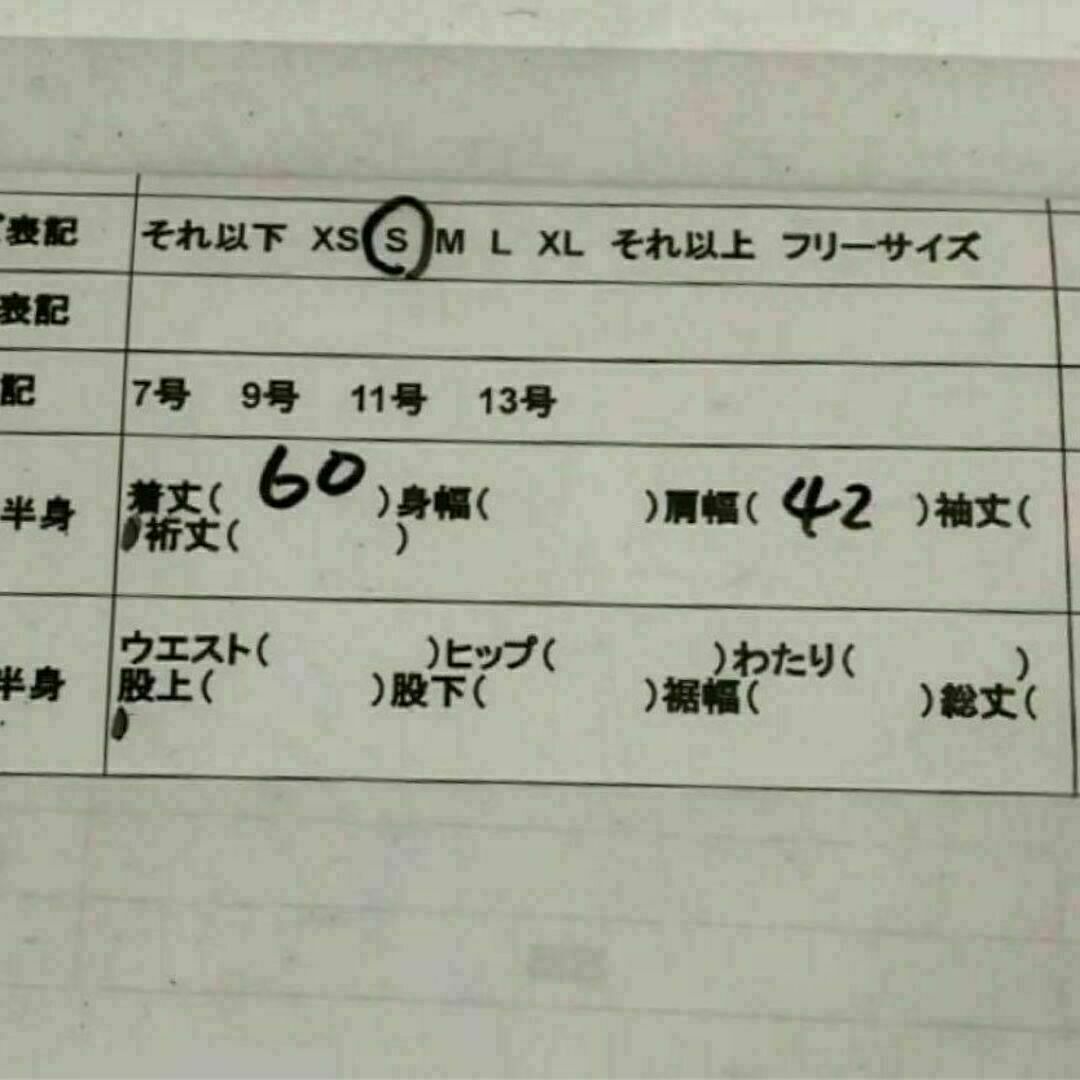 表記 それ以下 XS S M L XL それ以上 フリーサイズ
表記
記 7号 9号 11号 13号
半身 着丈( 60 )身幅( )肩幅( 42 )袖丈(
裄丈( )
ウエスト( )ヒップ( )わたり( )
半身 股上( )股下( )裾幅( )総丈(